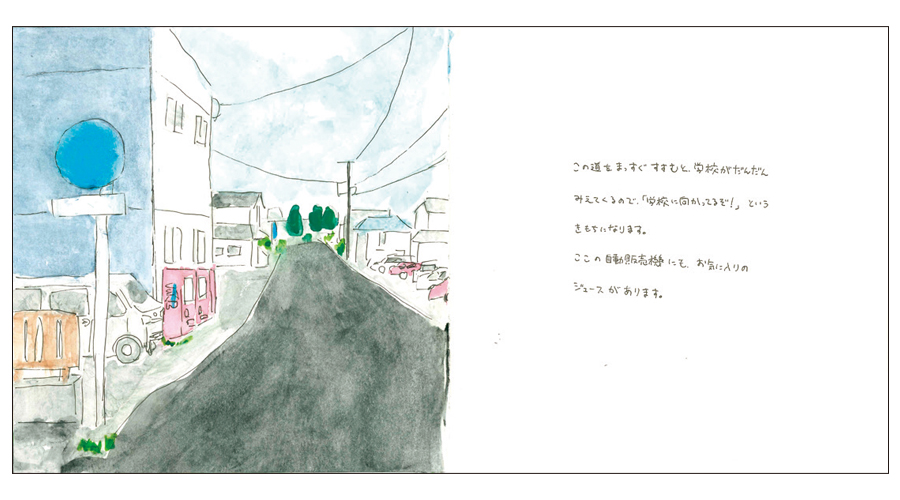 この道をまっすぐすすむと、学校がだんだん
みえてくるので、「学校に向かってるぞ!」という
きもちになります。
ここの自動販売機にも、お気に入りの
ジュースがあります。